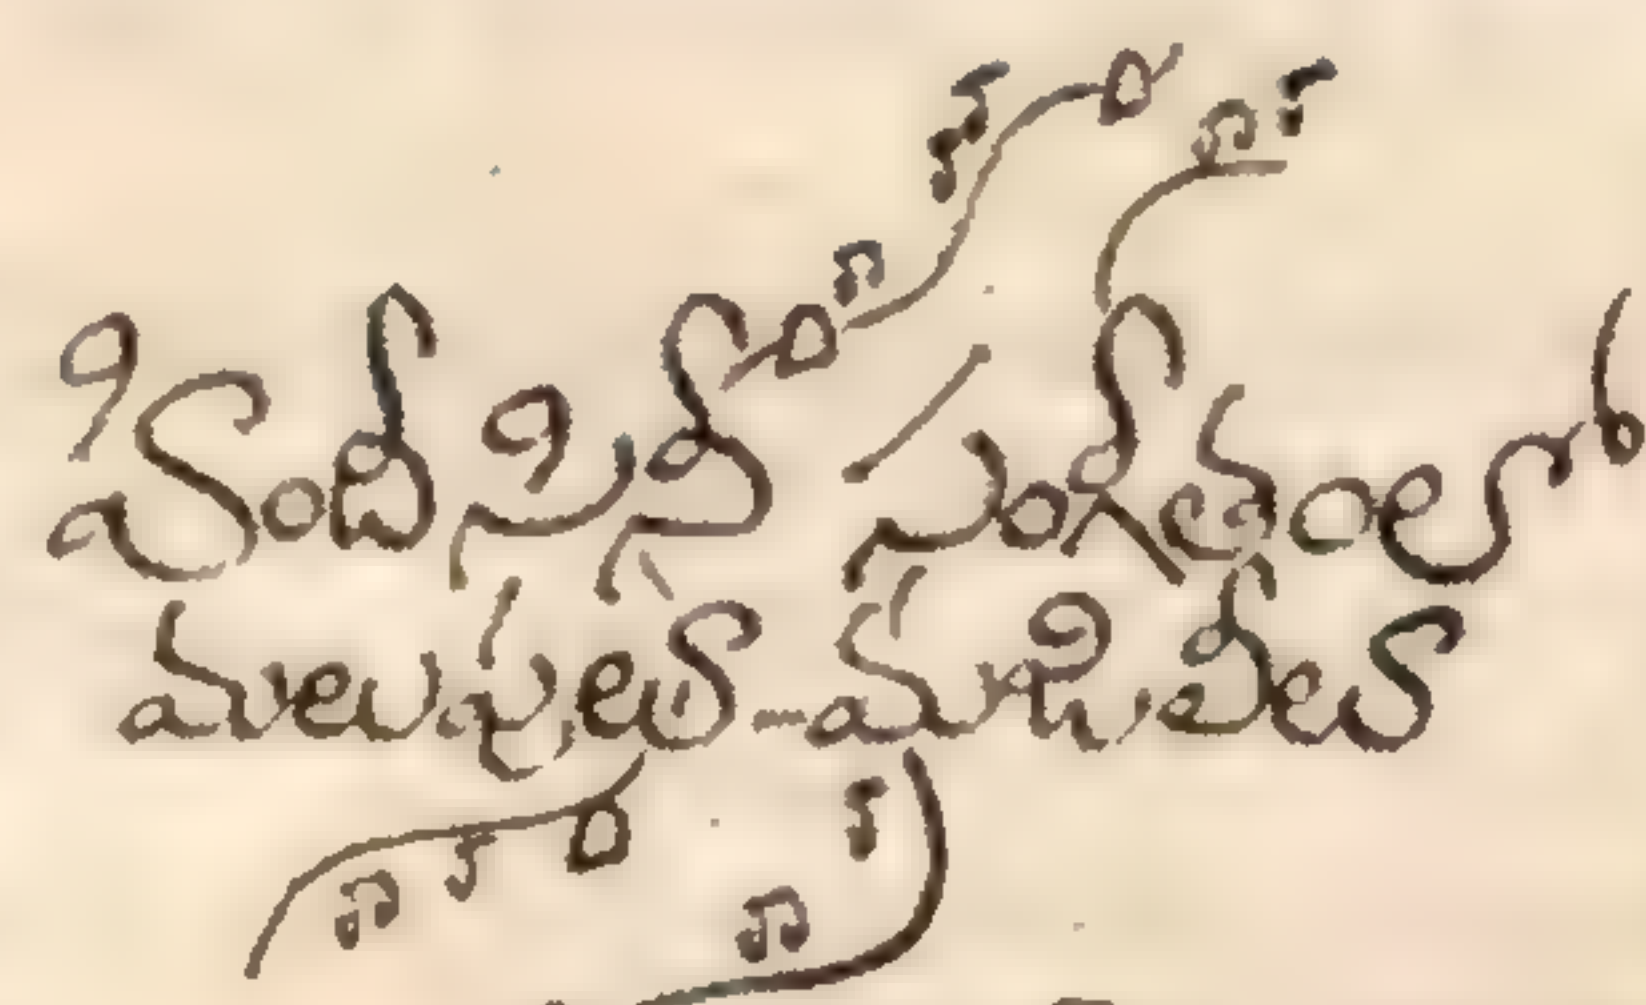 హిందీసినీ సంగీతంలో
మలుపులు - మజిలీలు